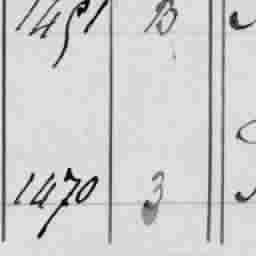 1451 B
1470 3